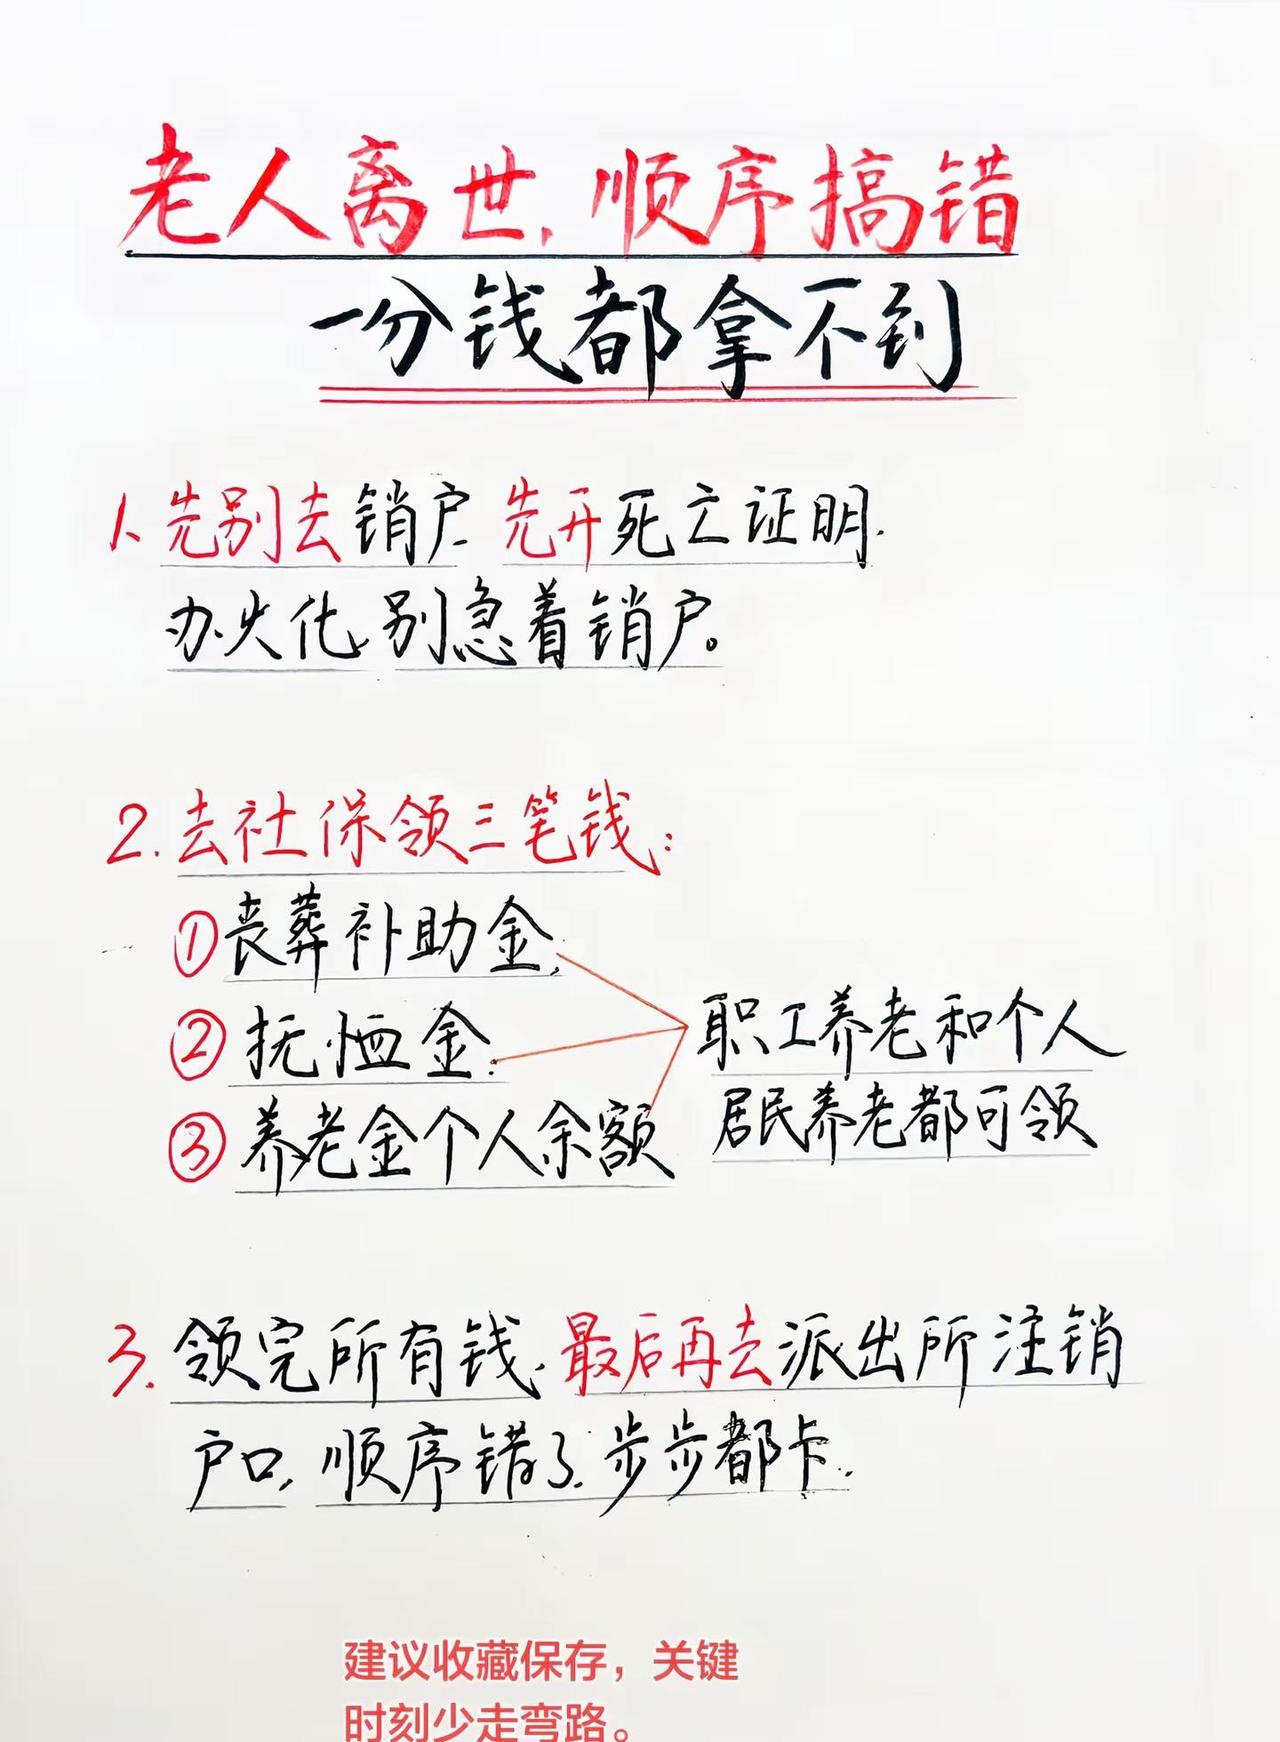 老人离世,顺序搞错
一分钱都拿不到
1、先别去销户.先开死亡证明.
办火化,别急着销户。
2.去社保领三笔钱:
①丧葬补助金,
②抚恤金.
③养老金个人余额
职工养老和个人
居民养老都可领
3.领完所有钱.最后再去派出所注销
户口,顺序错了.步步都卡.
建议收藏保存，关键
时刻少走弯路。